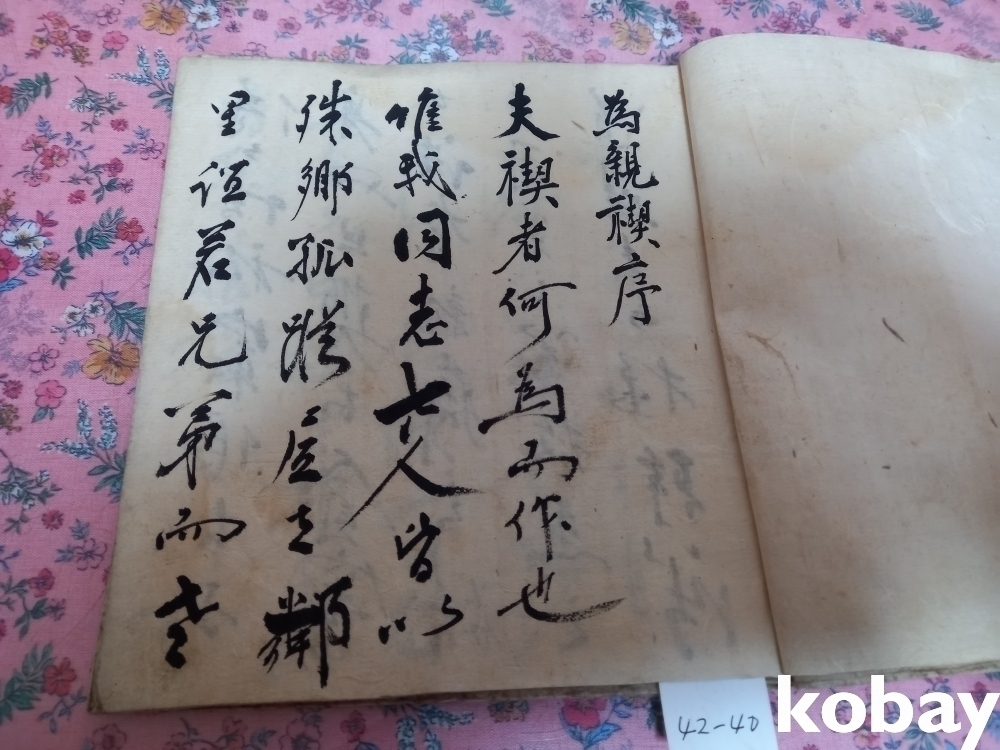 為親禊序
夫禊者何為而作也
惟我同志七人皆以
殊鄉孤蹤居之鄰
里誼若兄弟而老
42-40
kobay